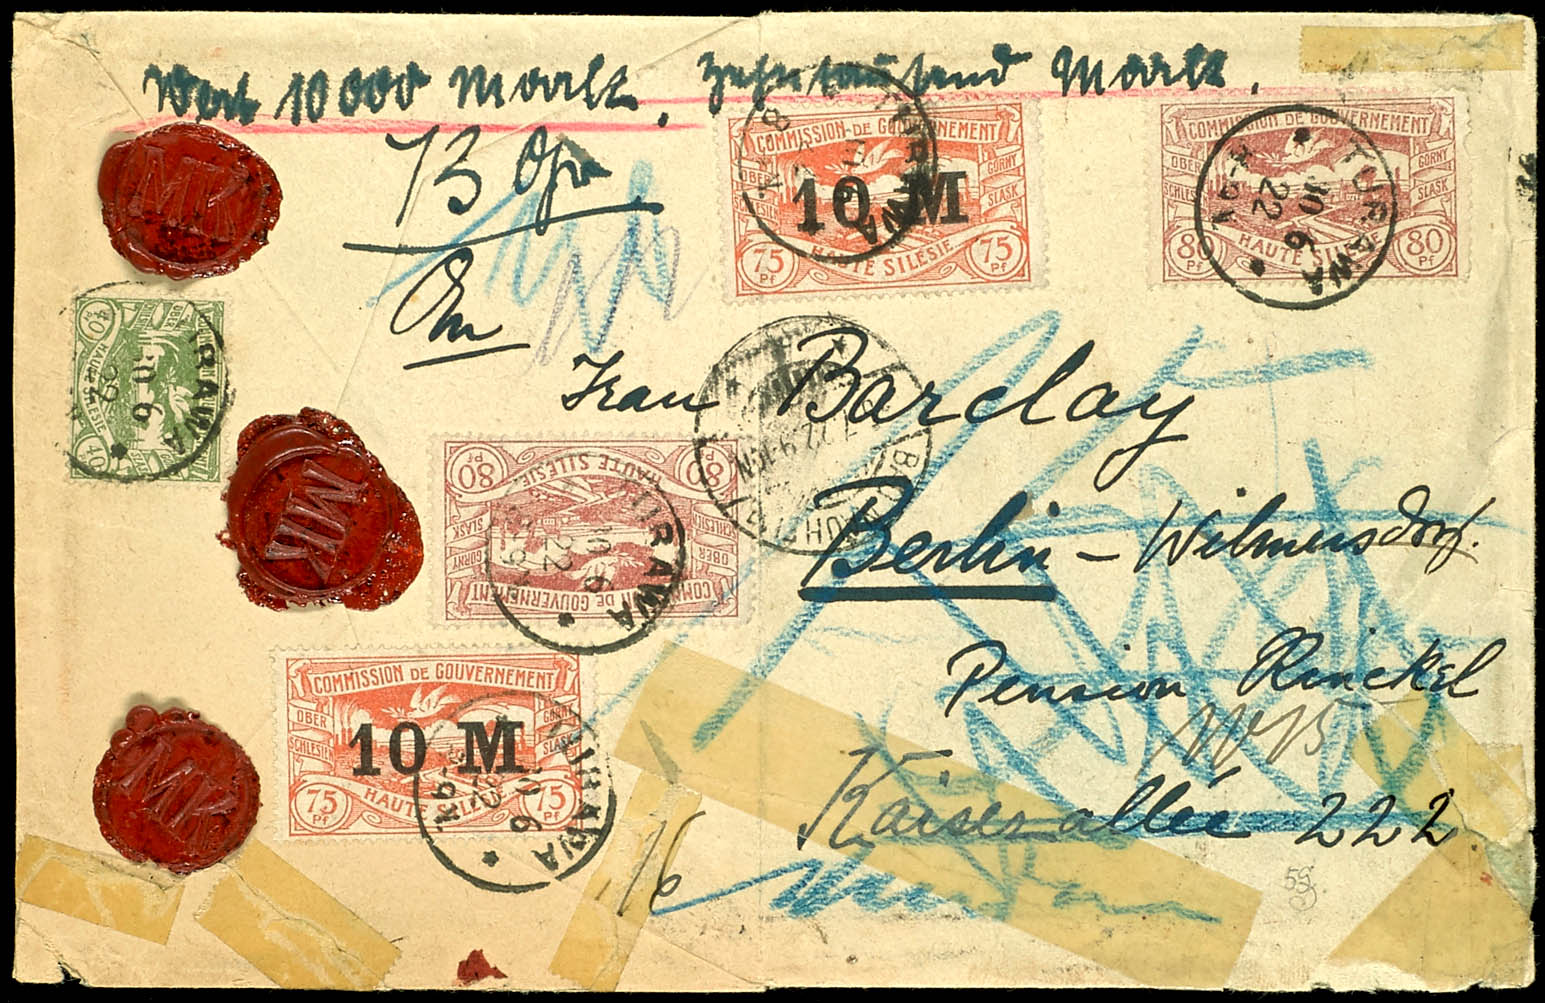 Wert 10 000 Mark. Zehntausend Mark.
73 Gr
An
Frau Barclay
Berlin - Wilmersdorf.
Pension Rinckel
Kaiserallee 222
16
MK
MK
MK
COMMISSION DE GOUVERNEMENT
OBER SCHLESIEN GORNY SLASK
10 M
75 Pf HAUTE SILESIE 75 Pf
TURAWA
COMMISSION DE GOUVERNEMENT
OBER SCHLESIEN GORNY SLASK
80 Pf HAUTE SILESIE 80 Pf
TURAWA
10 6
22
40 Pf HAUTE SILESIE 40
OBER
TURAWA
10 6
22
COMMISSION DE GOUVERNEMENT
OBER SCHLESIEN GORNY SLASK
80 Pf HAUTE SILESIE 80 Pf
TURAWA
10 6
22
COMMISSION DE GOUVERNEMENT
OBER SCHLESIEN GORNY SLASK
10 M
75 Pf HAUTE SILESIE 75 Pf
TURAWA
10 6
22